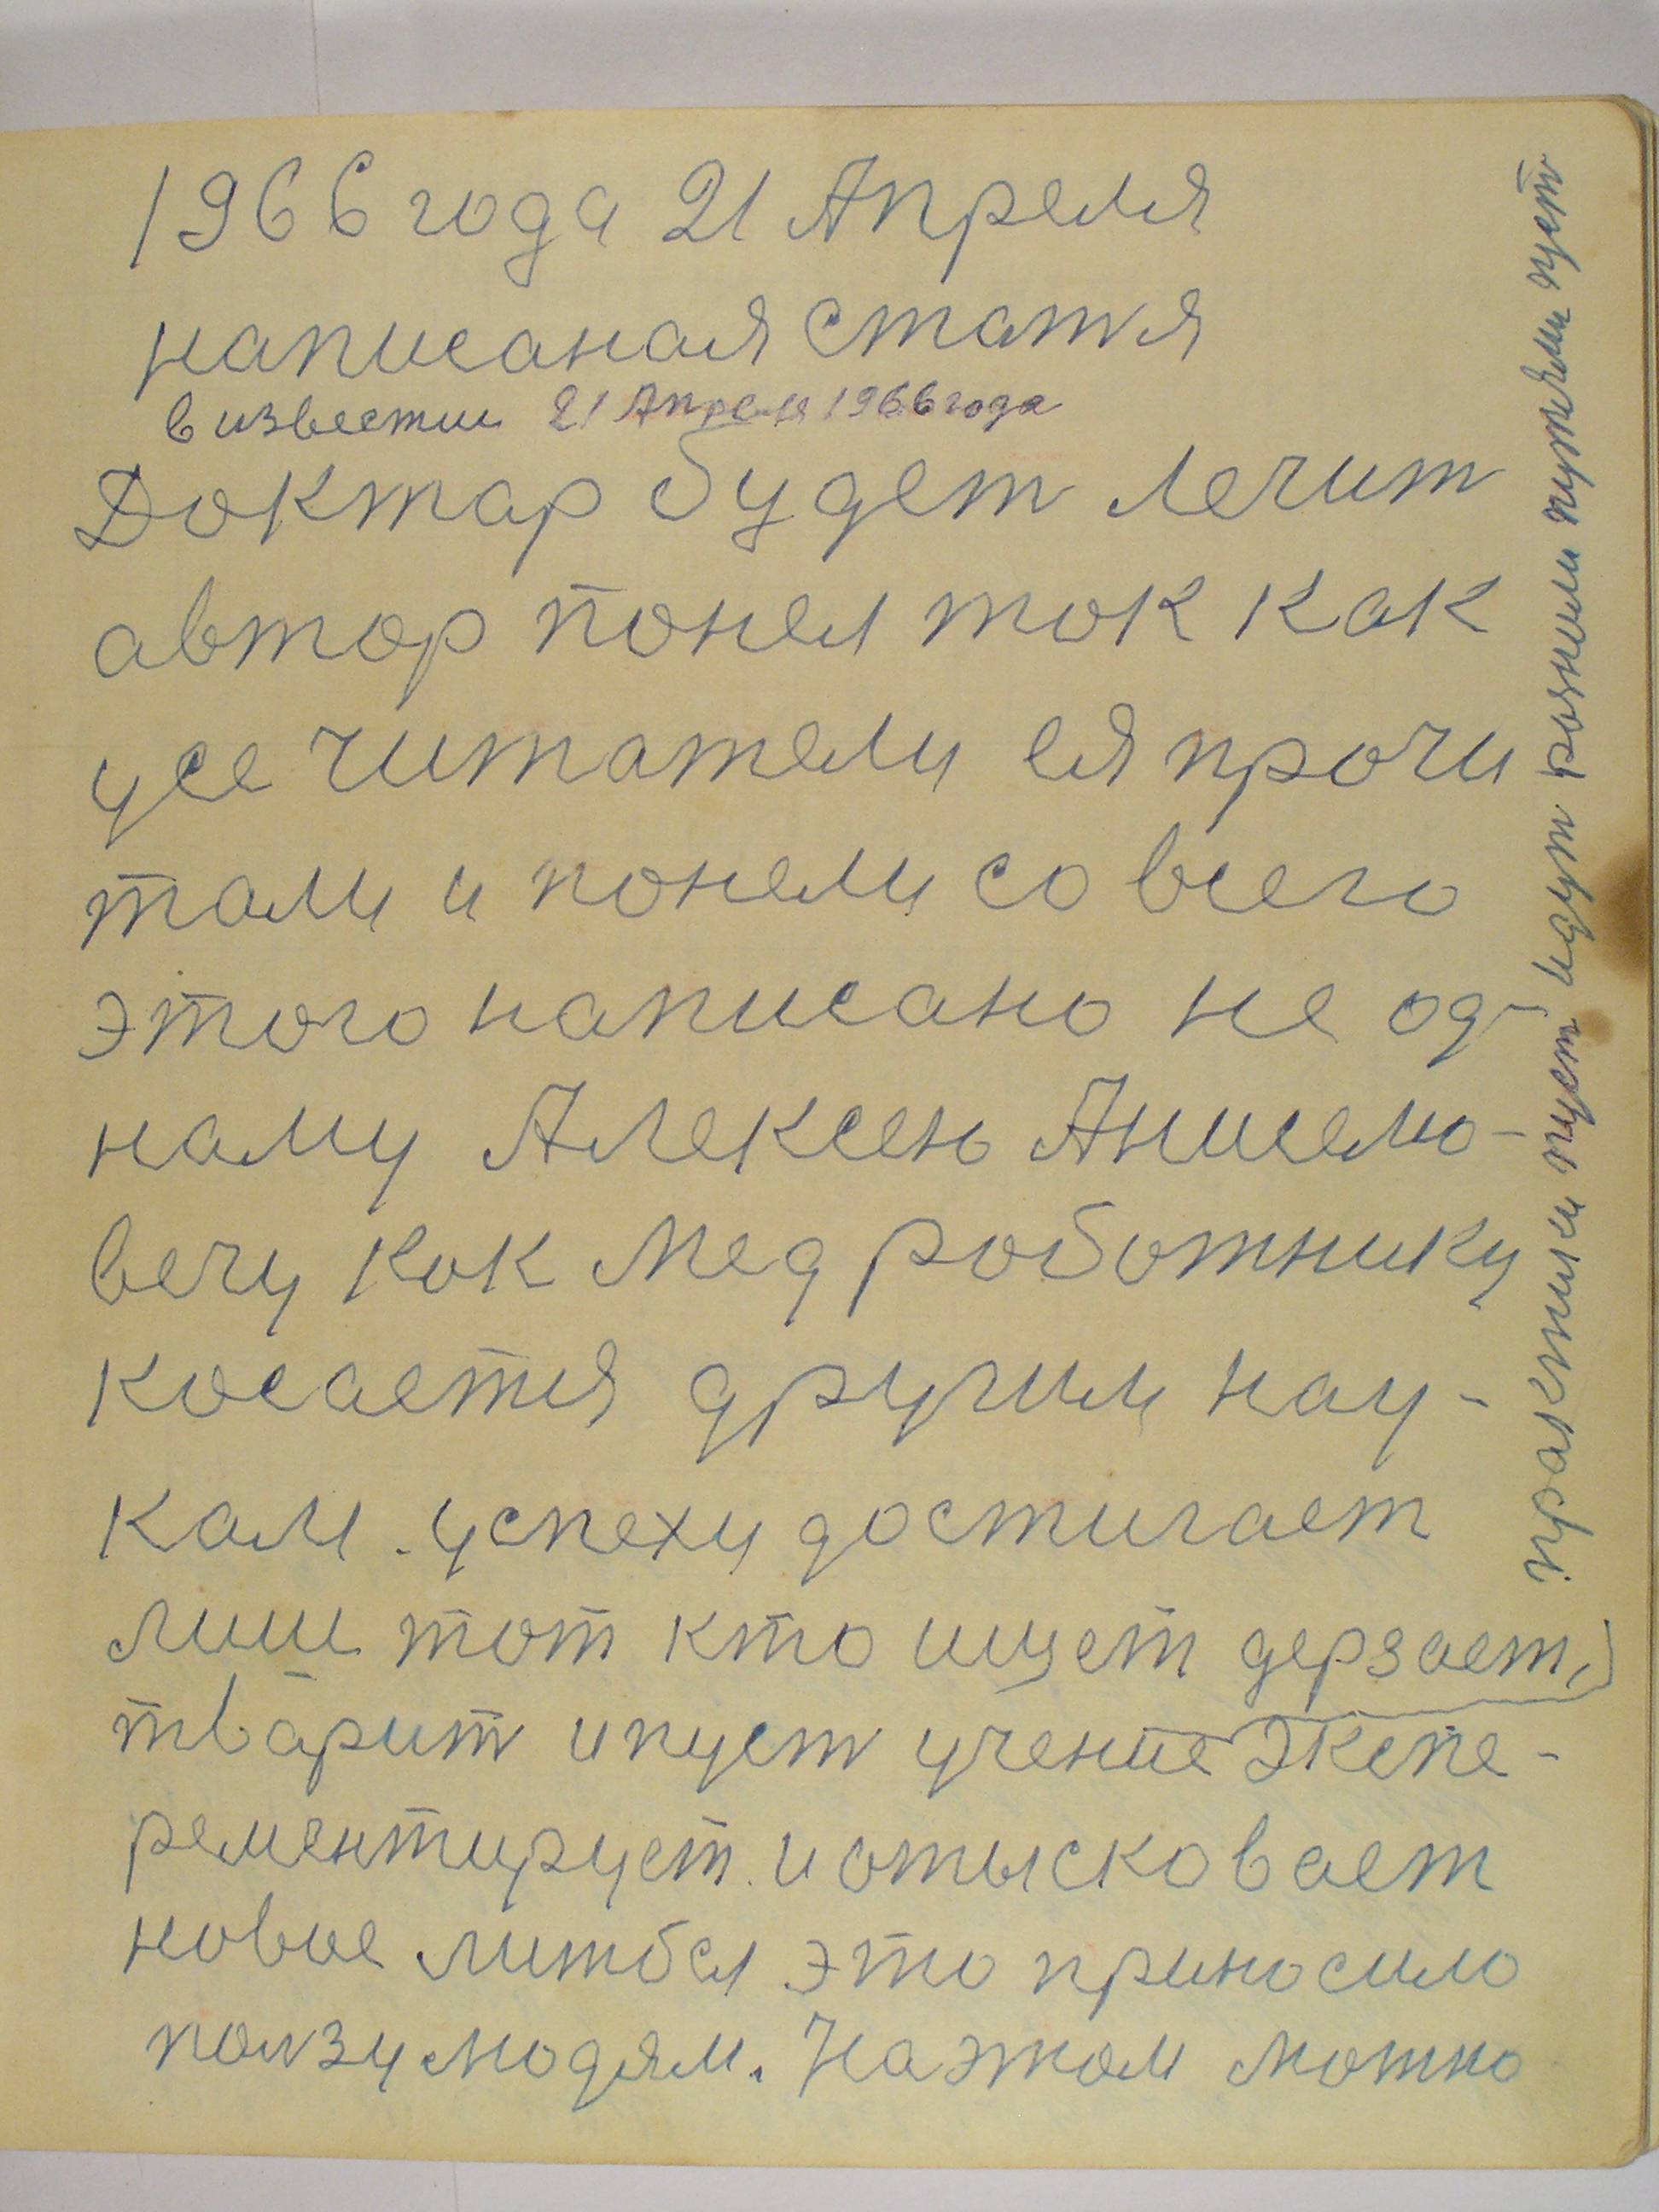 1966 года 21 Апреля
написаная статя
в известии 21 Апреля 1966 года
Доктар будет лечит
автор понел ток как
усе читатели ея прочи
тали и понели со всего
этого написано не од-
наму Алексею Анисемо-
вечу как мед роботнику
косается другим нау-
кам. успеху достигает
лиш тот кто ищет дерзает,
тварит и пуст учение Экспе-
рементирует. и отысковает
новое литбы это приносило
ползу людям. На этом мотно
практики пуст идут розными путями пуст